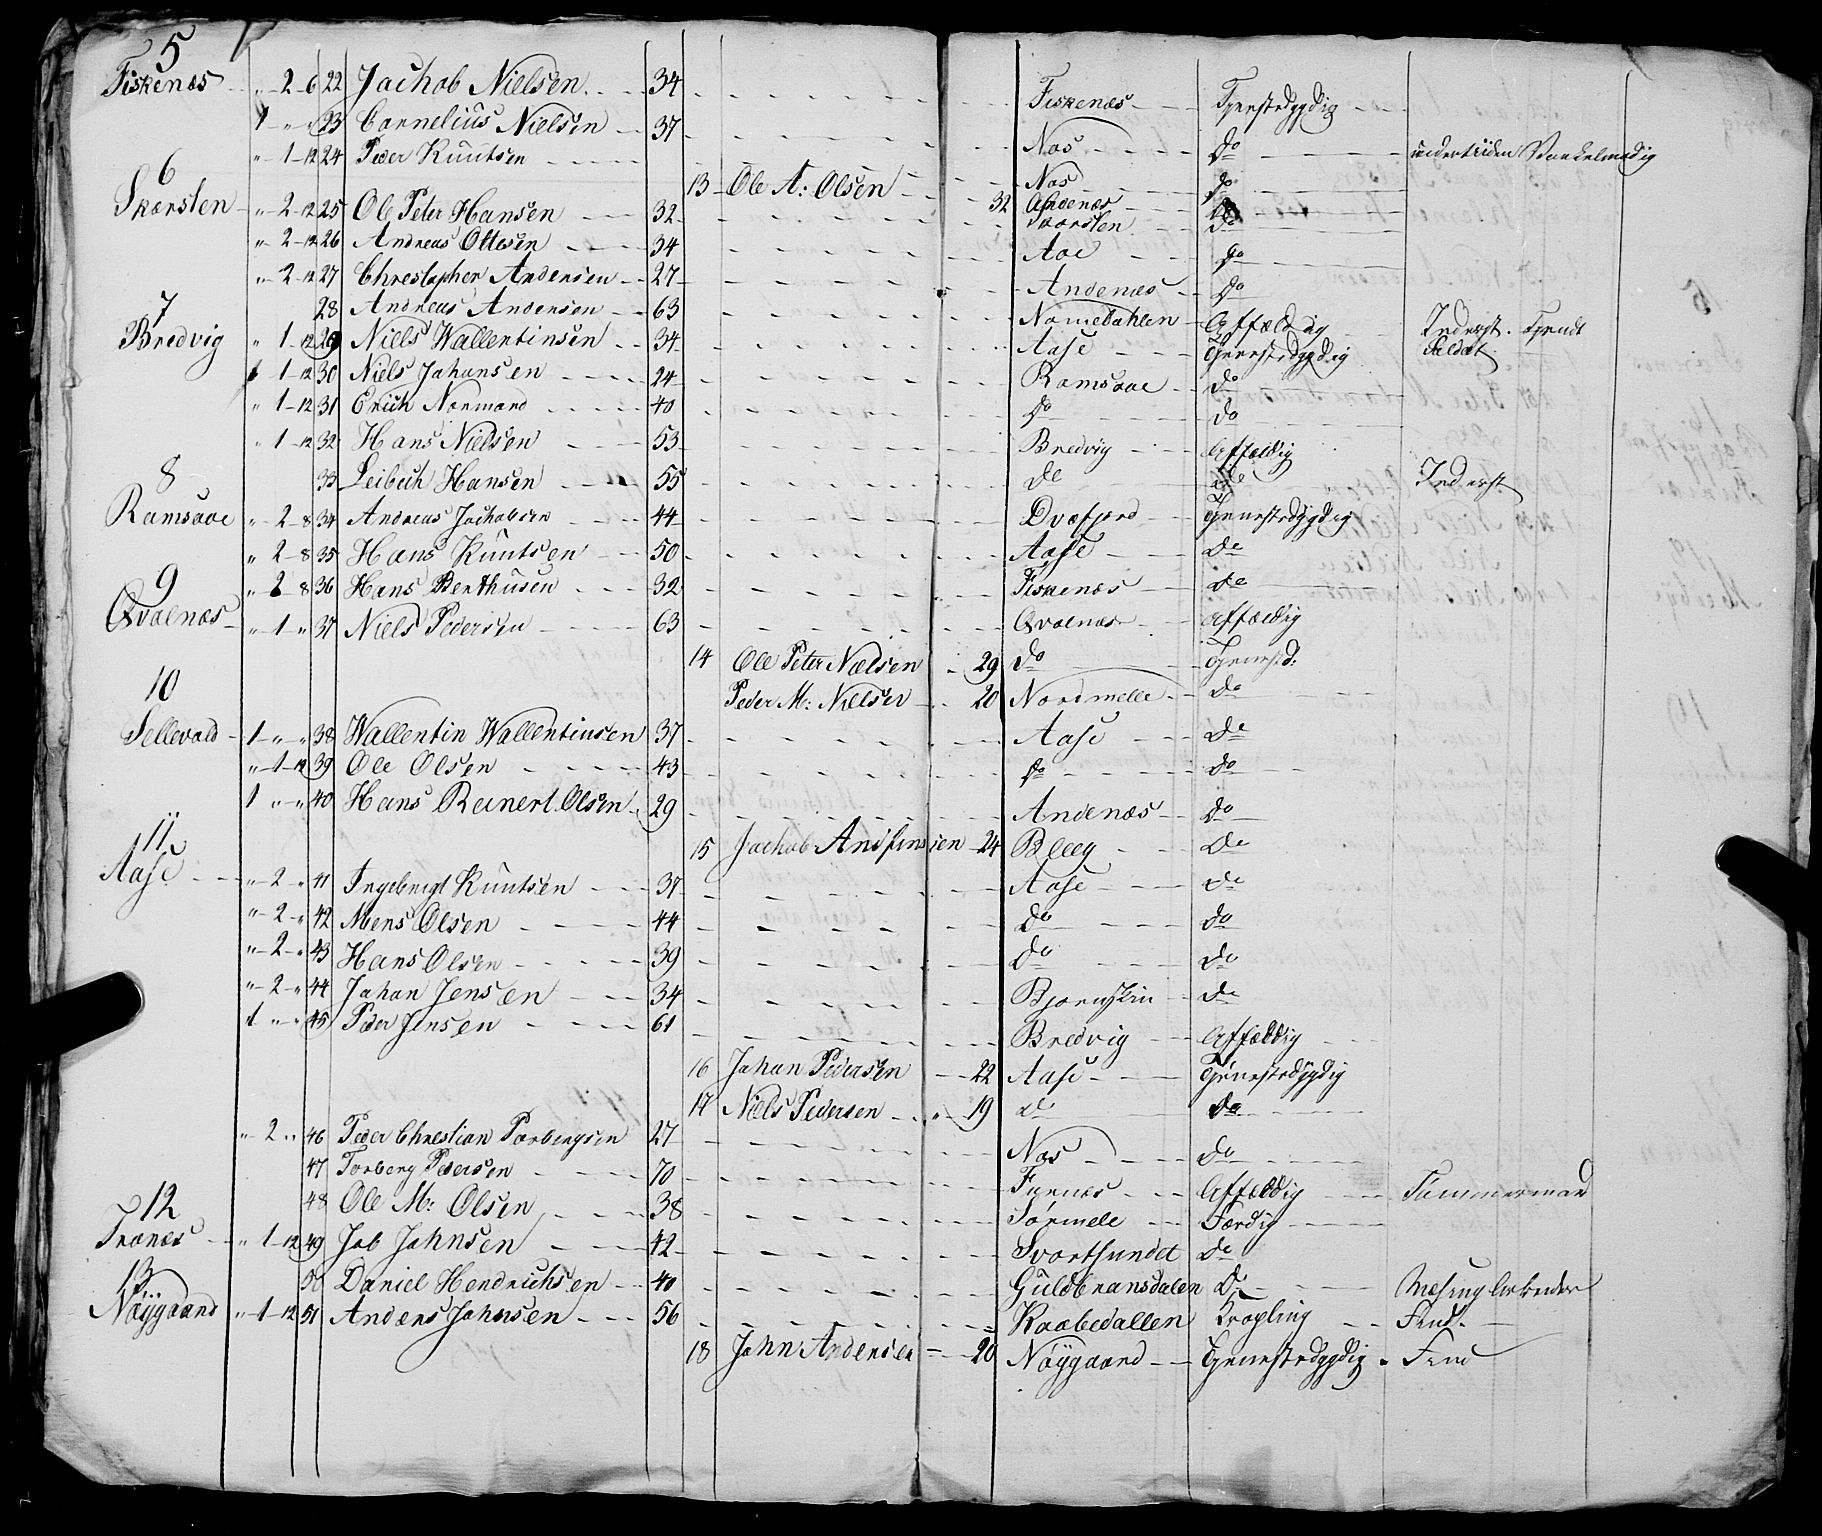 5
Fiskenæs „ 2 6 22 Jachob Nielsen 34 Fiskenæs Tjenestdygdig
1 „ „ 23 Cornelius Nielsen 37 Nos do
„ 1 12 24 Peder Knutsen undertiden Vankelmodig
6
13 Ole A: Olsen 32 Nos do
Skarsten „ 2 12 25 Ole Peter Hansen 32 Andenæs do
Skarsten do
„ 2 12 26 Andreas Ottesen 34 Aae do
„ 2 12 27 Christopher Andersen 27 Andenæs do
28 Andreas Andersen 63 Nomedahlen Affældig Inderst.
7
Bredvig „ 1 12 29 Niels Wallentinsen 34 Aase Tjenestdygdig Soldat
1 12 30 Niels Johansen 24 Ramsaae do
„ 1 12 31 Erich Normand 40 do do
„ 1 12 32 Hans Nielsen 53 Bredvig Affældig
33 Leibech Hansen 55 do do Inderst
8
Ramsaae „ 2 8 34 Andreas Jachobsen 44 Dvefjord Tjenestdygdig
„ 2 8 35 Hans Knutsen 50 Aase do
„ 2 8 36 Hans Benthusen 32 Fiskenæs do
9
Qvalnæs „ 1 „ 37 Niels Pedersen 63 Qvalnæs Affældig
14 Ole Peter Nielsen 29 do Tjenstd:
Peder M: Nielsen 20 Nordmelle do
10
Sellevold 1 „ „ 38 Wallentin Wallentinsen 37 Aase do
„ 1 12 39 Ole Olsen 43 do do
1 „ „ 40 Hans Reinert Olsen 29 Andenæs do
15 Jachob Andfinsen 24 Bleeg do
11
Aase „ 2 „ 41 Ingebrigt Knutsen 37 Aase do
„ 2 „ 42 Mons Olsen 44 do do
„ 2 „ 43 Hans Olsen 39 do do
„ 2 „ 44 Johan Jensen 34 Bjørnskin do
1 „ „ 45 Peder Jensen 61 Bredvig Affældig
16 Johan Pedersen 22 Aase Tjenestdygdig
17 Niels Pedersen 19 do do
„ 2 „ 46 Peder Christian Torbergsen 27 Nos do
47 Torberg Pedersen 70 Furnæs Affældig Tømmermand
48 Ole M: Olsen 38 Sørmele Færdig
12
Tranæs „ 1 12 49 Job Johnsen 42 Svartsundet do
50 Daniel Hendrichsen 40 Guldbransdalen do Mesing Arbeider
13
Nøygaard „ 1 12 51 Anders Johnsen 56 Kaabedallen Krøgling Find.
18 John Andersen 20 Nøygaard Tjenestdygdig Find